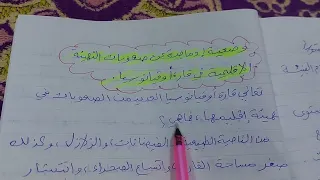 وضعية: وماهي صعوبات التهيئة
الإقليمية في قارة أوقيانوسيا.
تعاني قارة أوقيانوسيا العديد من الصعوبات في
تهيئة إقليمها، ماهي؟
من الناحية الطبيعية الفيضانات، والزلازل، وكذلك
صغر مساحة القارة واتساع الصحراء، وانتشار